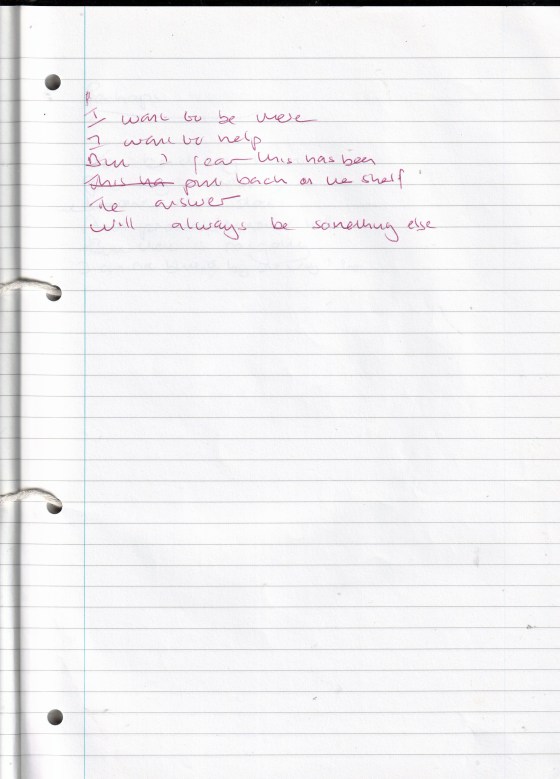 I want to be there
I want to help
But I fear this has been
This ha put back on the shelf
The answer
Will always be something else